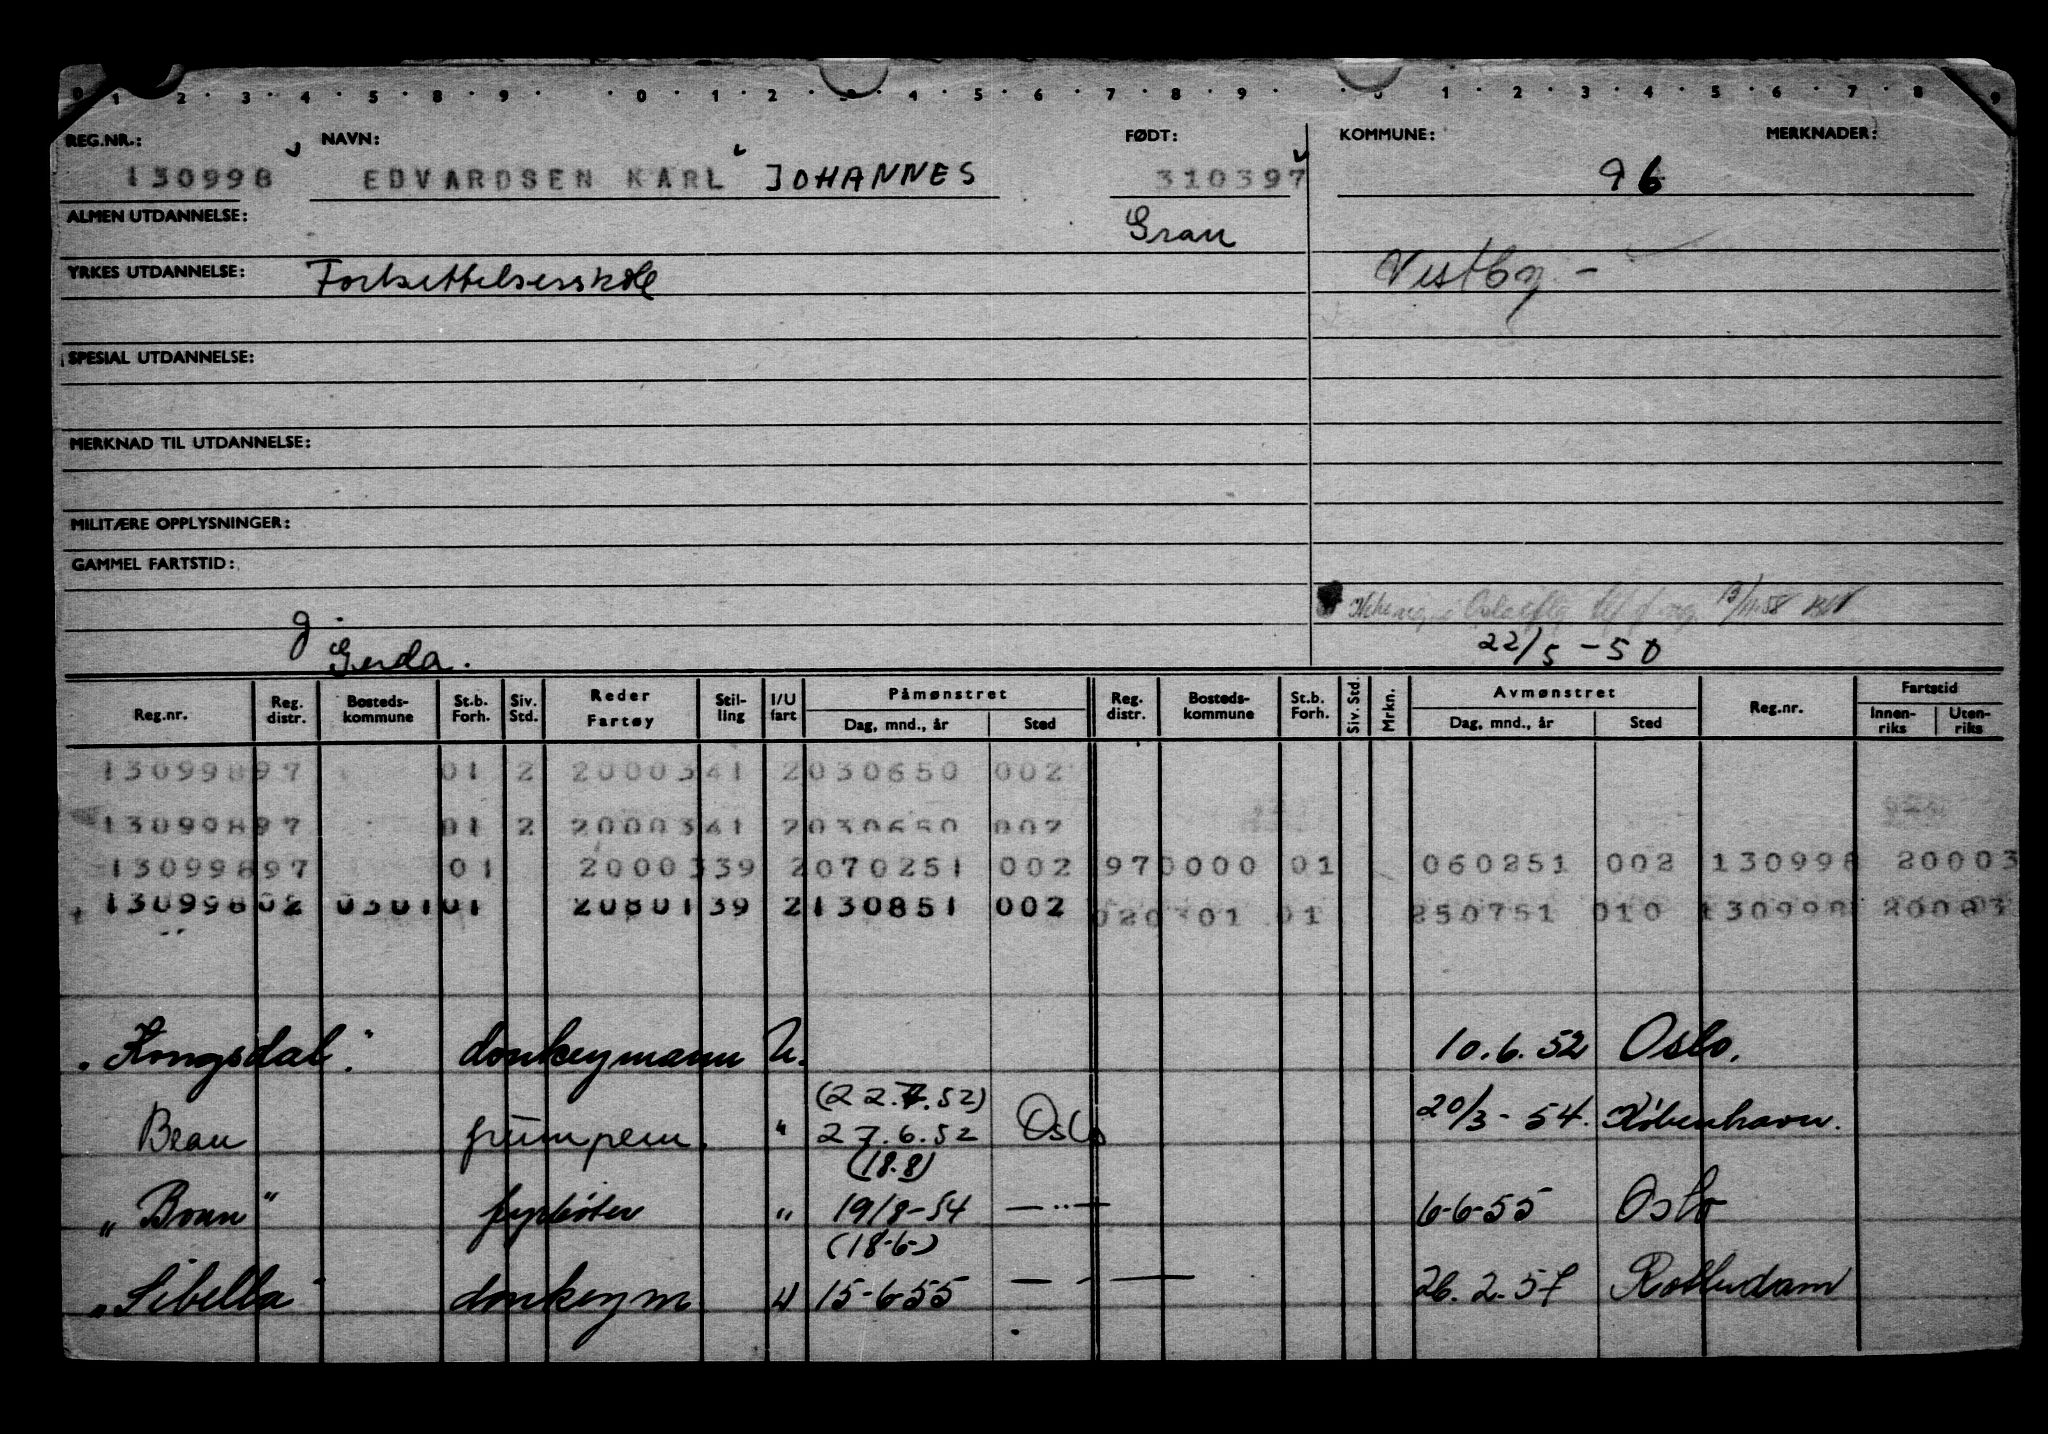 0 1 · 2 · 3 · 4 · 5 · 8 · 9 · 0 · 1 · 2 · 3 · 4 · 5 · 6 · 7 · 8 · 9 · · 0 · 1 · 2 · 3 · 4 · 5 · 6 · 7 · 8 · 9
REG.NR.: NAVN: FØDT: KOMMUNE: MERKNADER:
130998 EDVARDSEN KARL JOHANNES 310397 96
ALMEN UTDANNELSE: Gran
YRKES UTDANNELSE: Fortsettelsesskole Vestby -
SPESIAL UTDANNELSE:
MERKNAD TIL UTDANNELSE:
MILITÆRE OPPLYSNINGER:
GAMMEL FARTSTID:
13/11-58
g.
Gerda. 22/5 - 50
Reg.nr. Reg. distr. Bosteds-kommune St.b. Forh. Siv. Std. Reder Fartøy Stil-ling I/U fart Påmønstret Dag, mnd., år Sted Reg. distr. Bosteds-kommune St.b. Forh. Siv. Std. Mrkn. Avmønstret Dag, mnd., år Sted Reg.nr. Fartstid Innen-riks Uten-riks
13099897 01 2 2000341 2030650 002
13099897 01 2 2000341 2030650 002
13099897 01 2000339 2070251 002 970000 01 060251 002 130998 20003
13099802 030101 2080139 2130851 002 020301 01 250751 010 130998 20003
"Kongsdal". donkeymann U. 10.6.52 Oslo.
(22.7.52)
Bran pumpem. " 27.6.52 Oslo 20/3-54. København.
(18.8)
"Bonn" fyrbøter " 19/8-54 — " — 6-6-55 Oslo
(18-6-)
"Sibella" donkeym " 15-6-55 — " — 26.2.57 Rotterdam